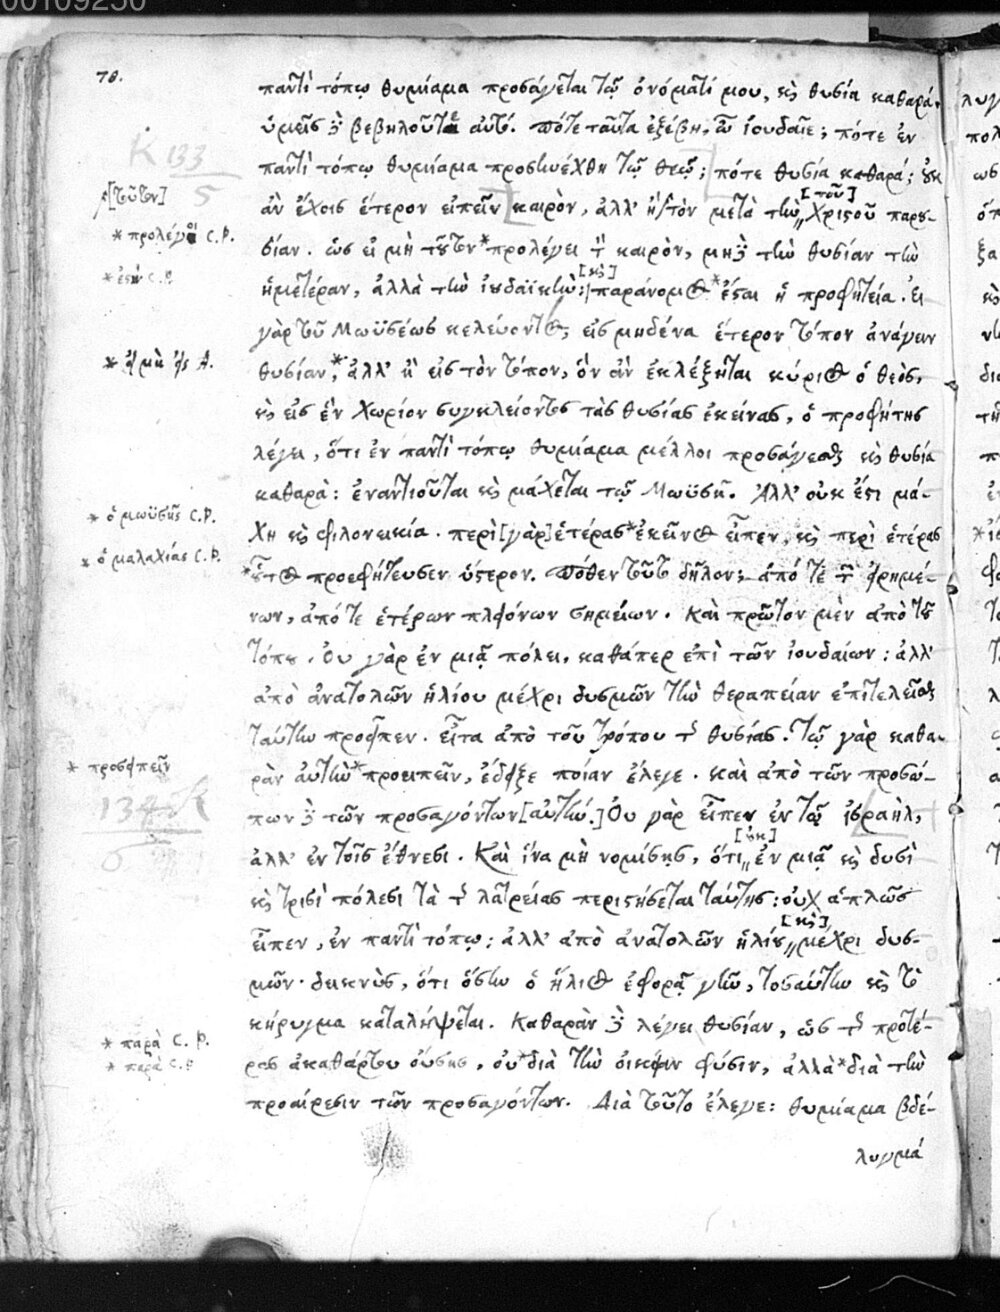 00109250
78.
παντὶ τόπῳ θυμίαμα προσάγεται τῷ ὀνόματί μου, καὶ θυσία καθαρά.
ὑμεῖς δὲ βεβηλοῦτε αὐτό. Πότε ταῦτα ἐξέβη, ὦ ἰουδαῖε; πότε ἐν
παντὶ τόπῳ θυμίαμα προσηνέχθη τῷ θεῷ; πότε θυσία καθαρά; οὐκ
ἂν ἔχοις ἕτερον εἰπεῖν καιρὸν, ἀλλ' ἢ τὸν μετὰ τὴν [τοῦ] Χριστοῦ παρου-
σίαν. ὡς εἰ μὴ τοῦτον * προλέγει τὸν καιρὸν, μηδὲ τὴν θυσίαν τὴν
ἡμετέραν, ἀλλὰ τὴν ἰουδαϊκὴν: [καὶ] παράνομος * ἔσται ἡ προφητεία. Εἰ
γὰρ τοῦ Μωϋσέως κελεύοντος, εἰς μηδένα ἕτερον τόπον ἀνάγειν
θυσίαν, * ἀλλ' ἢ εἰς τὸν τόπον, ὃν ἂν ἐκλέξηται κύριος ὁ θεὸς,
καὶ εἰς ἓν χωρίον συγκλείοντος τὰς θυσίας ἐκείνας, ὁ προφήτης
λέγει, ὅτι ἐν παντὶ τόπῳ θυμίαμα μέλλοι προσάγεσθαι καὶ θυσία
καθαρὰ: ἐναντιοῦται καὶ μάχεται τῷ Μωϋσῇ. Ἀλλ' οὐκ ἔστι μά-
χη καὶ φιλονεικία. περὶ [γὰρ] ἑτέρας * ἐκεῖνος εἶπεν, καὶ περὶ ἑτέρας
* οὗτος προεφήτευσεν ὕστερον. Πόθεν τοῦτο δῆλον; ἀπό τε τῶν εἰρημέ-
νων, ἀπό τε ἑτέρων πλειόνων σημείων. Καὶ πρῶτον μὲν ἀπὸ τοῦ
τόπου. Οὐ γὰρ ἐν μιᾷ πόλει, καθάπερ ἐπὶ τῶν ἰουδαίων: ἀλλ'
ἀπὸ ἀνατολῶν ἡλίου μέχρι δυσμῶν τὴν θεραπείαν ἐπιτελεῖσθαι
ταύτην προεῖπεν. εἶτα ἀπὸ τοῦ τρόπου τῆς θυσίας. Τῷ γὰρ καθα-
ρὰν αὐτὴν * προειπεῖν, ἔδειξε ποίαν ἔλεγε. καὶ ἀπὸ τῶν προσώ-
πων δὲ τῶν προσαγόντων [αὐτήν.] Οὐ γὰρ εἶπεν ἐν τῷ ἰσραὴλ,
ἀλλ' ἐν τοῖς ἔθνεσι. Καὶ ἵνα μὴ νομίσῃς, ὅτι [οὐκ] ἐν μιᾷ καὶ δυσὶ
καὶ τρισὶ πόλεσι τὰ τῆς λατρείας περιστήσεται ταύτης: οὐχ ἁπλῶς
εἶπεν, ἐν παντὶ τόπῳ: ἀλλ' ἀπὸ ἀνατολῶν ἡλίου [καὶ] μέχρι δυσ-
μῶν. δεικνὺς, ὅτι ὅσην ὁ ἥλιος ἐφορᾷ γῆν, τοσαύτην καὶ τὸ
κήρυγμα καταλήψεται. Καθαρὰν δὲ λέγει θυσίαν, ὡς τῆς προτέ-
ρας ἀκαθάρτου οὔσης, οὐ * διὰ τὴν οἰκείαν φύσιν, ἀλλὰ * διὰ τὴν
προαίρεσιν τῶν προσαγόντων. Διὰ τοῦτο ἔλεγε: θυμίαμα βδέ-
λυγμά
K 133
5
[τοῦτον]
* προλέγοι C.P.
* ἐστὶν C.P.
* εἰ μὴ εἰς A.
* ὁ μωϋσῆς C.P.
* ὁ μαλαχίας C.P.
* προσειπεῖν
134 K
* παρὰ C. P.
* παρὰ C.P